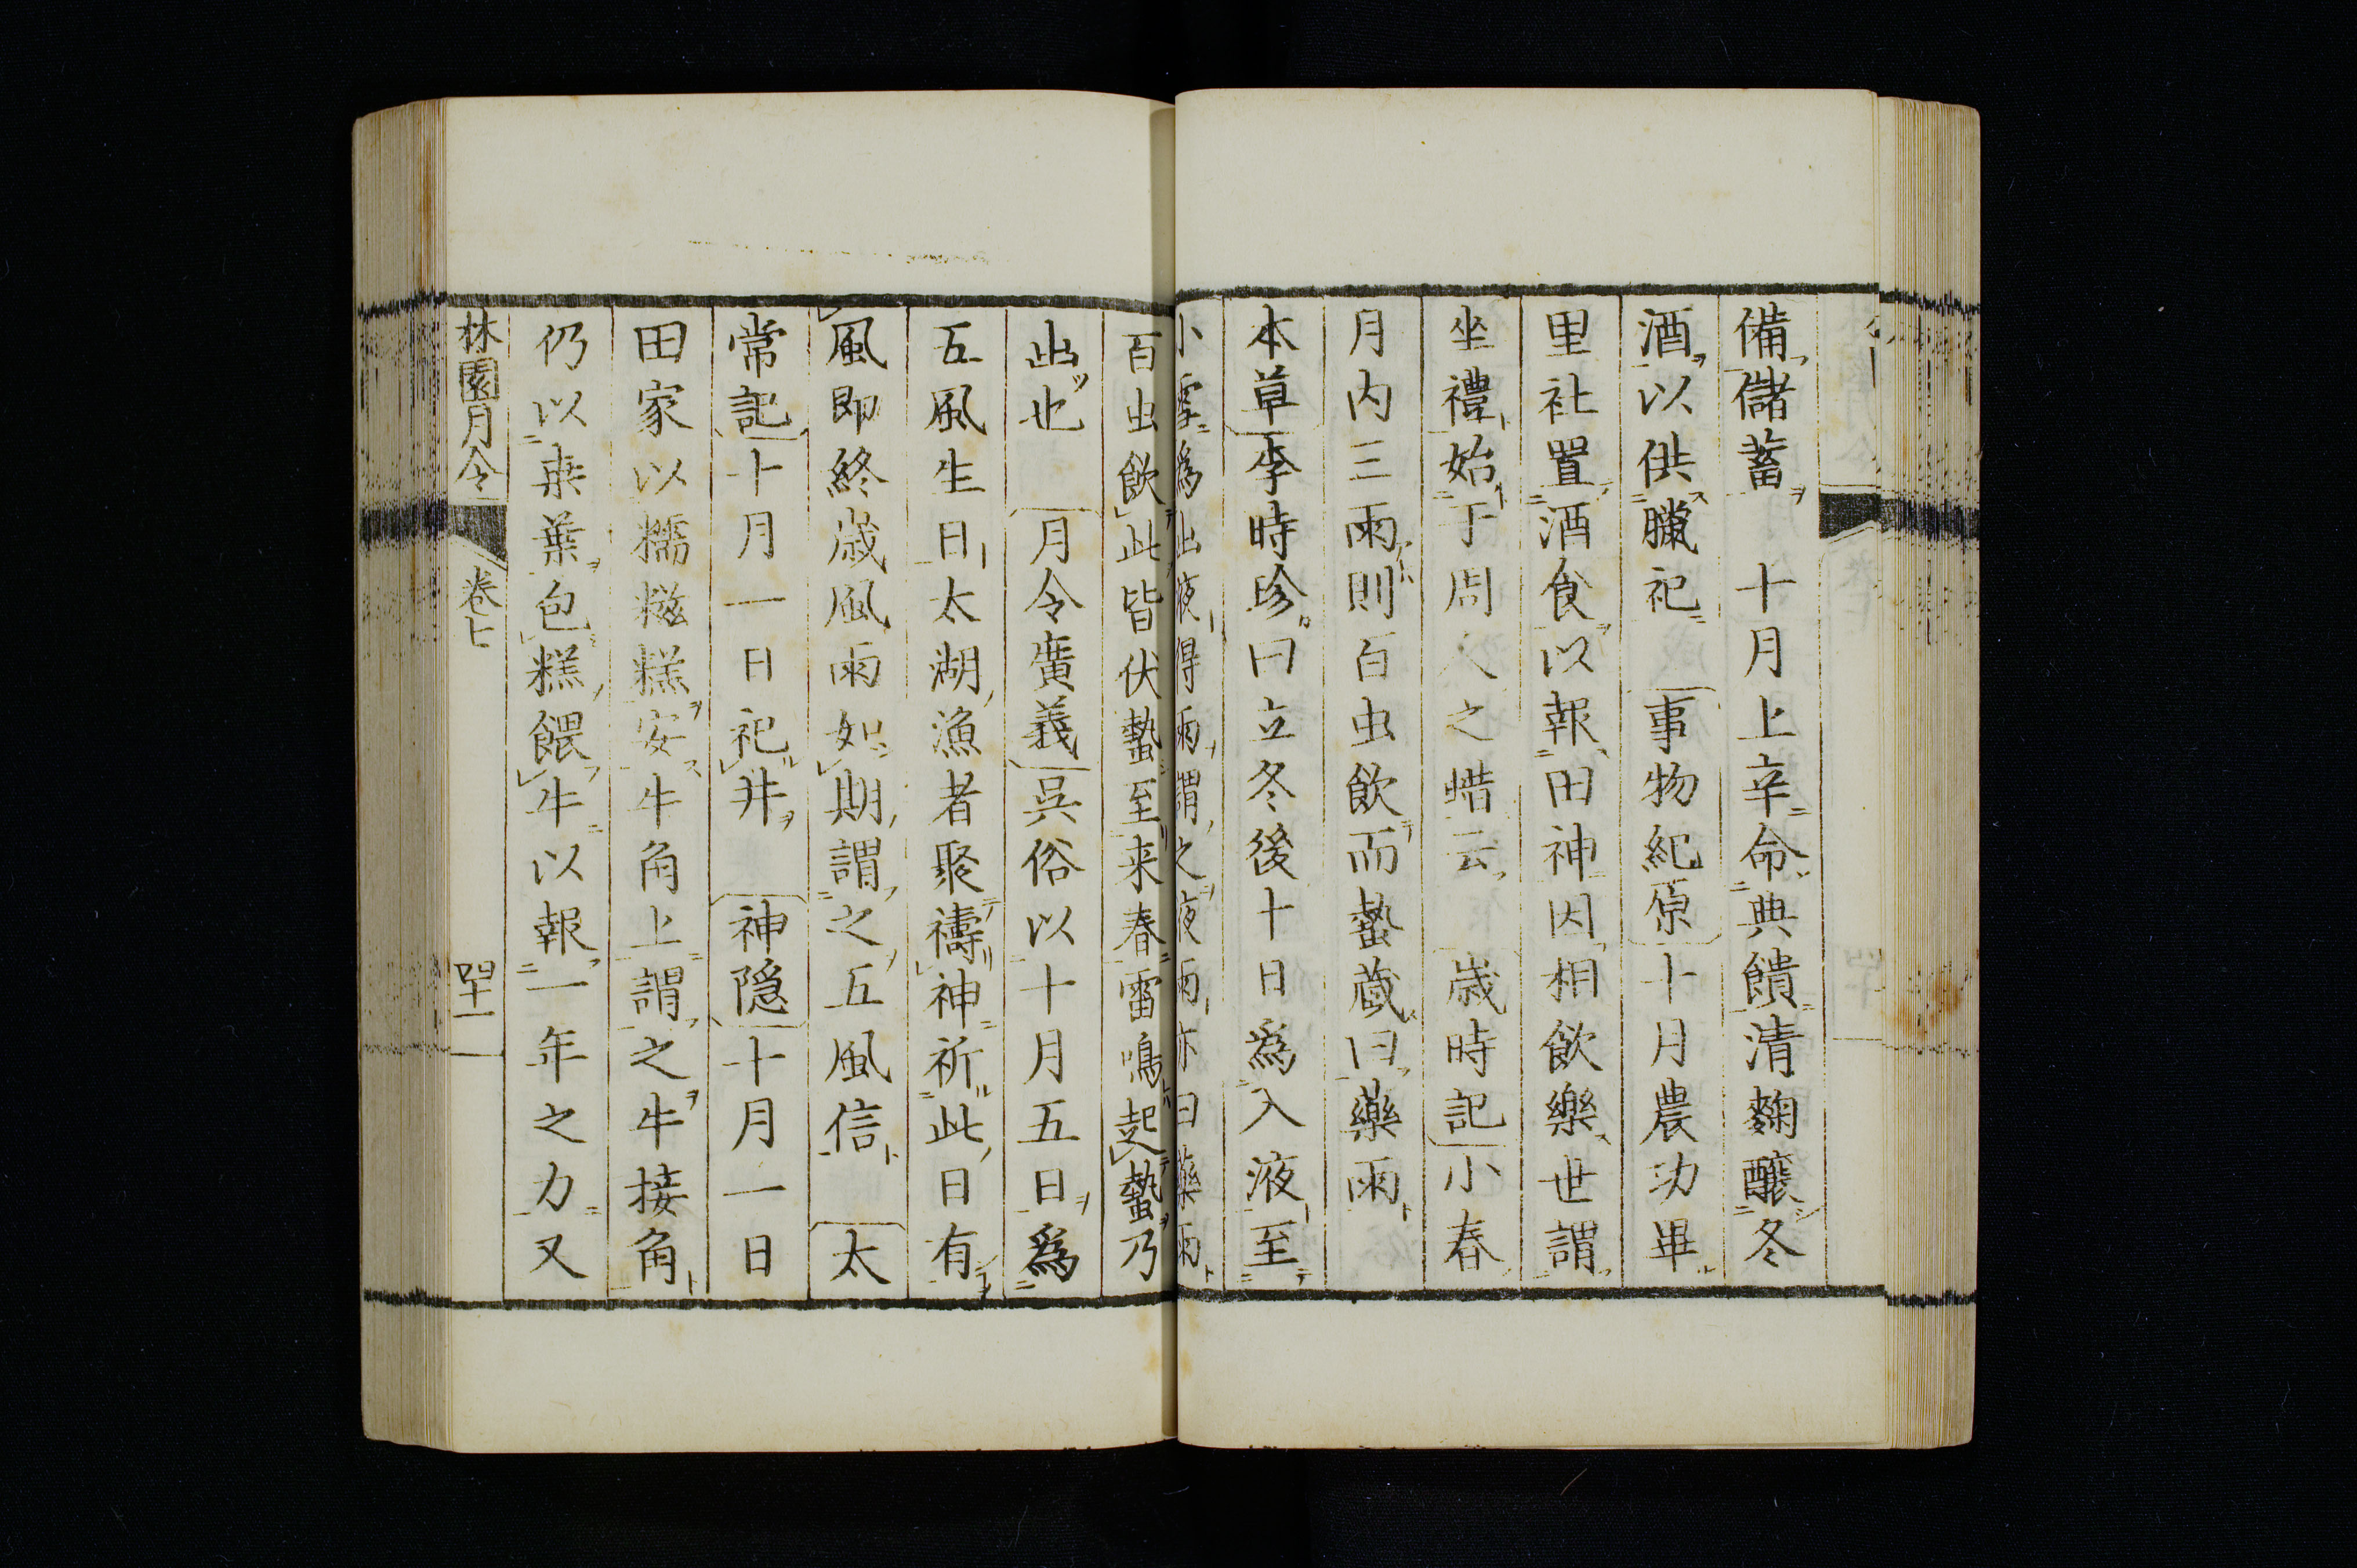 備儲蓄　十月上辛命典饋清麴釀冬
酒以供臘祀　事物紀原十月農功畢
里社置酒食以報田神因相飲樂世謂
坐禮始于周人之蜡云　歳時記小春
月内三雨則百虫飲而蟄蔵曰藥雨
本草李時珍曰立冬後十日爲入液至
小雪爲出液得雨謂之液雨亦曰藥雨
百虫飲此皆伏蟄至来春雷鳴起蟄乃
出也　月令廣義呉俗以十月五日爲
五風生日太湖漁者聚禱神祈此日有
風即終歳風雨如期謂之五風信　太
常記十月一日祀井　神隠十月一日
田家以糯糍糕安牛角上謂之牛接角
仍以菜葉包糕餵牛以報一年之力又
林園月令
巻七
四十一